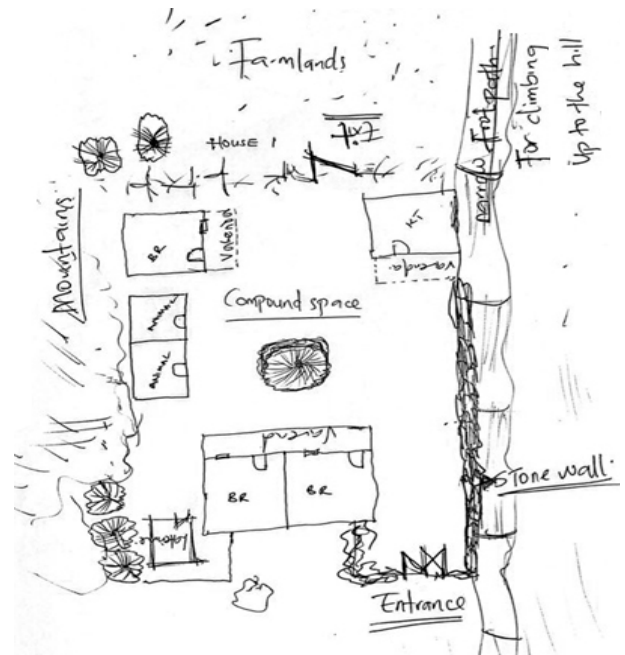 Farmlands
HOUSE 1
Exit
narrow Footpath
For climbing
Up to the hill
Mountains
BR
Varenda
KT
Varenda
Compound space
ANIMAL
ANIMAL
Varend
BR
BR
Latrine
Stone wall
Entrance